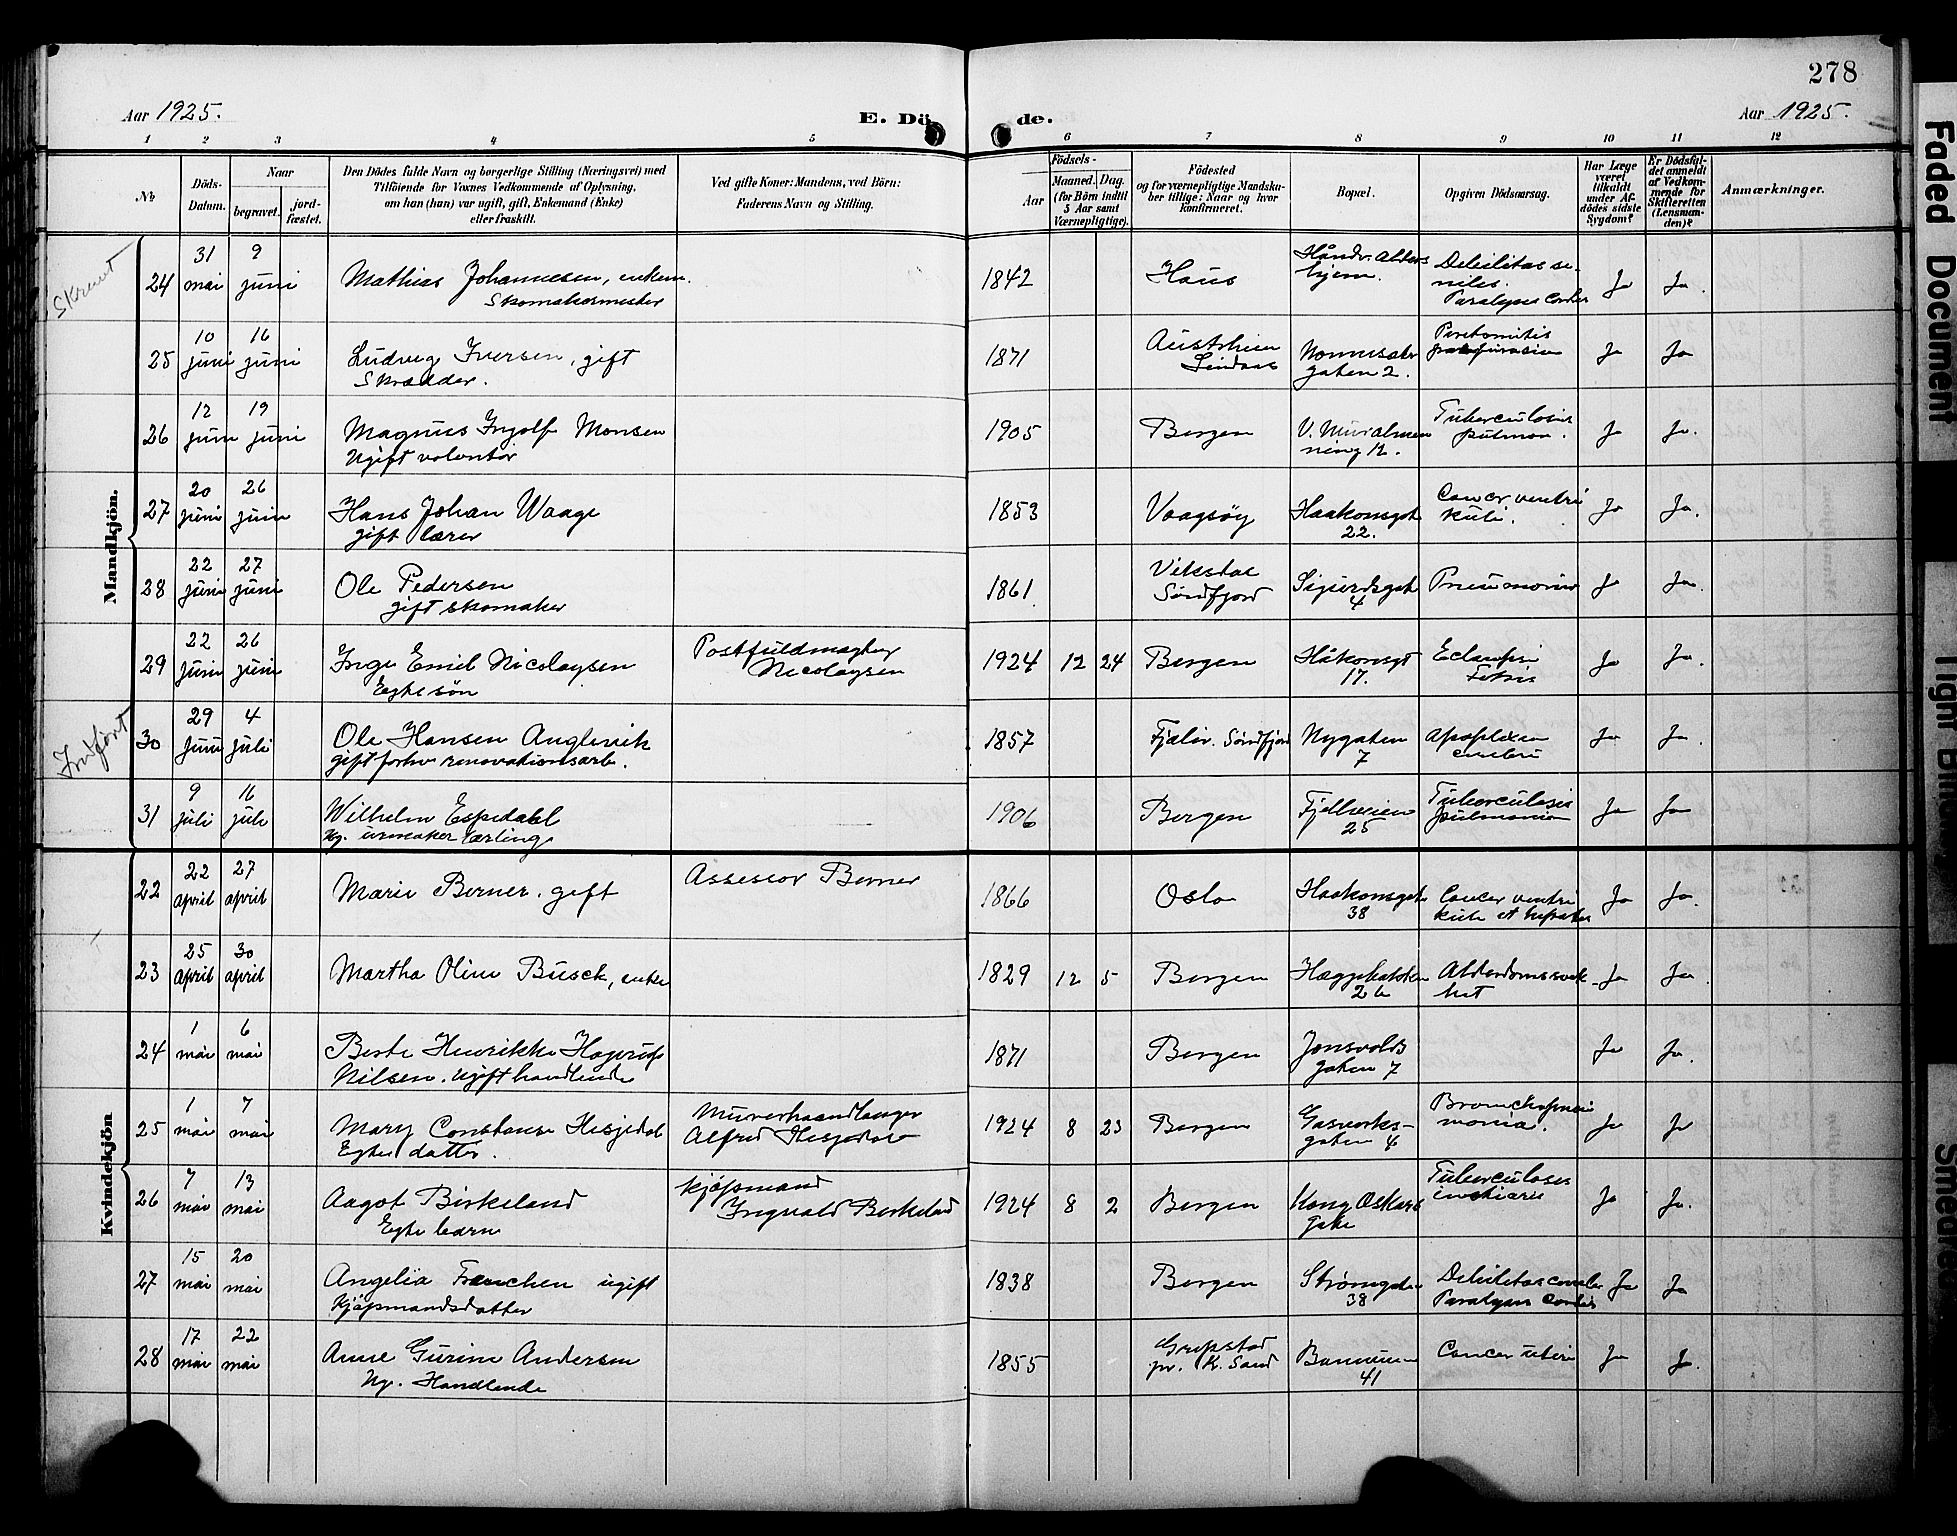 278
Aar 1925.
E. Dö de.
Aar 1925.
1 2 3 4 5 6 7 8 9 10 11 12
No
Döds-Datum.
Naar
begravet.
jord-fæstet.
Den Dödes fulde Navn og borgerlige Stilling (Næringsvei) med
Tilföiende for Voxnes Vedkommende af Oplysning,
om han (hun) var ugift, gift, Enkemand (Enke)
eller fraskilt.
Ved gifte Koner: Mandens, ved Börn:
Faderens Navn og Stilling.
Födsels-
Aar
Maaned. Dag.
(for Börn indtil
5 Aar samt
Værnepligtige).
Födested
og for værnepligtige Mandska-
ber tillige: Naar og hvor
konfirmeret.
Bopæl.
Opgiven Dödsaarsag.
Har Læge
været
tilkaldt
under Af-
dödes sidste
Sygdom?
Er Dödsfal-
det anmeldt
af Vedkom-
mende for
Skifteretten
(Lensman-
den)?
Anmærkninger.
Mandkjön.
24 31 mai 9 juni Mathias Johannesen, enkem.
Skomakermester
1842 Haus Håndv. Alders
hjem. Debilitas se-
niles.
Paralyses Cordis Ja Ja.
25 10 juni 16 juni Ludvig Iversen, gift
Skrædder.
1871 Austrheim
Lindaas Nonneseter
gaten 2. Ja Ja
26 12 juni 19 juni Magnus Ingolf Monsen
Ugift volontør
1905 Bergen V. Muralmen
ning 12. Tuberculosis
pulmon. Ja Ja.
27 20 juni 26 juni Hans Johan Waage
gift lærer
1853 Vaagsøy Haakonsgt
22. Cancer ventri
kuli. Ja Ja.
28 22 juni 27 juni Ole Pedersen
gift skomaker
1861 Viksdal
Søndfjord Sigurdsgt
4 Pneumonia Ja Ja.
29 22 juni 26 juni Inge Emil Nicolaysen
Egte søn
Postfuldmægtig
Nicolaysen
1924 12 24 Bergen Håkonsgt
17. Ja Ja.
Indført
30 29 juni 4 juli Ole Hansen
gift forhv renovationsarb.
1857 Fjaler. Søndfjord Nygaten
7 Apoplexia
cerebri Ja Ja.
31 9 juli 16 juli Wilhelm Espedahl
Ug. urmaker lærling
1906 Bergen Fjellveien
25 Tuberculosis
pulmonum Ja Ja
Kvindekjön
22 22 april 27 april Marie Berner. gift
Assessor Berner
1866 Oslo Haakonsgt
38 Cancer ventri
kuli et hepatis Ja Ja.
23 25 april 30 april Martha Oline Büsck, enke
1829 12 5 Bergen Alderdomssvak-
het Ja Ja
24 1 mai 6 mai Berte Henrikke Hagerup
Nilsen. Ugift handlende
1871 Bergen Jonsvolds
gaten 7 Ja Ja.
25 1 mai 7 mai Mary Constanse Hesjedal
Egte datter.
Murerhaandlanger
Alfred Hesjedal
1924 8 23 Bergen Gasverks-
gaten 4 Bronchopneu
monia. Ja Ja
26 7 mai 13 mai Aagot Birkeland
Egte barn
Kjøpmand
Ingvald Birkeland
1924 8 2 Bergen Kong Oskars
gate Tuberculosis Ja Ja.
27 15 mai 20 mai Angelia Franchen ugift
Kjøpmandsdatter
1838 Bergen Strømgaten
38 Debilitas
Paralyses Cordis Ja Ja
28 17 mai 22 mai Anne Gurine Andersen
Ug. Handlende
1855 Gripstad
pr. K. Sand
41 Cancer uteri Ja Ja.
Faded Document
Tight Binding
Smeared